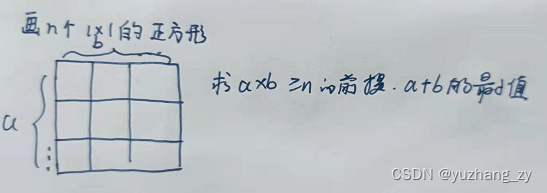 画n个1×1的正方形
b
a
求a×b≥n的前提.a+b的最小值
CSDN @yuzhang_zy